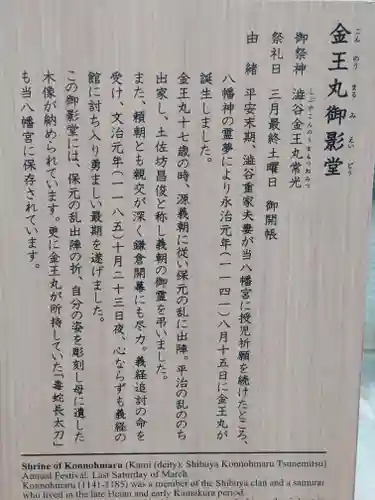 金王丸御影堂
こんのうまるみえいどう
御祭神　澁谷金王丸常光
しぶやこんのうまるつねみつ
祭礼日　三月最終土曜日　御開帳
由　緒　平安末期、澁谷重家夫妻が当八幡宮に授児祈願を続けたところ、
八幡神の霊夢により永治元年(一一四一)八月十五日に金王丸が
誕生しました。
金王丸十七歳の時、源義朝に従い保元の乱に出陣。平治の乱ののち
出家し、土佐坊昌俊と称し義朝の御霊を弔いました。
また、頼朝とも親交が深く鎌倉開幕にも尽力。義経追討の命を
受け、文治元年(一一八五)十月二十三日夜、心ならずも義経の
館に討ち入り勇ましい最期を遂げました。
この御影堂には、保元の乱出陣の折、自分の姿を彫刻し母に遺した
木像が納められています。更に金王丸が所持していた「毒蛇長太刀」
も当八幡宮に保存されています。
Shrine of Konnohmaru (Kami (deity): Shibuya Konnohmaru Tsunemitsu)
Annual Festival: Last Saturday of March
Konnohmaru (1141-1185) was a member of the Shibuya clan and a samurai
who lived in the late Heian and early Kamakura period.